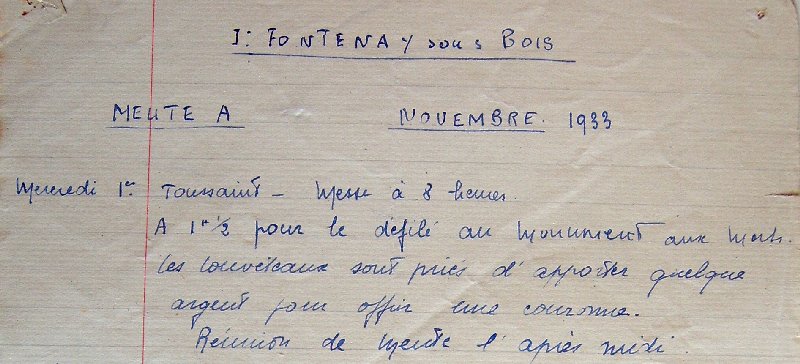 I: FONTENAY sous BOIS
MEUTE A NOVEMBRE. 1933
Mercredi 1er Toussaint - Messe à 8 heures.
A 1h 1/2 pour le défilé au Monument aux Morts.
Les louveteaux sont priés d'apporter quelque
argent pour offrir une couronne.
Réunion de Meute l'après midi.